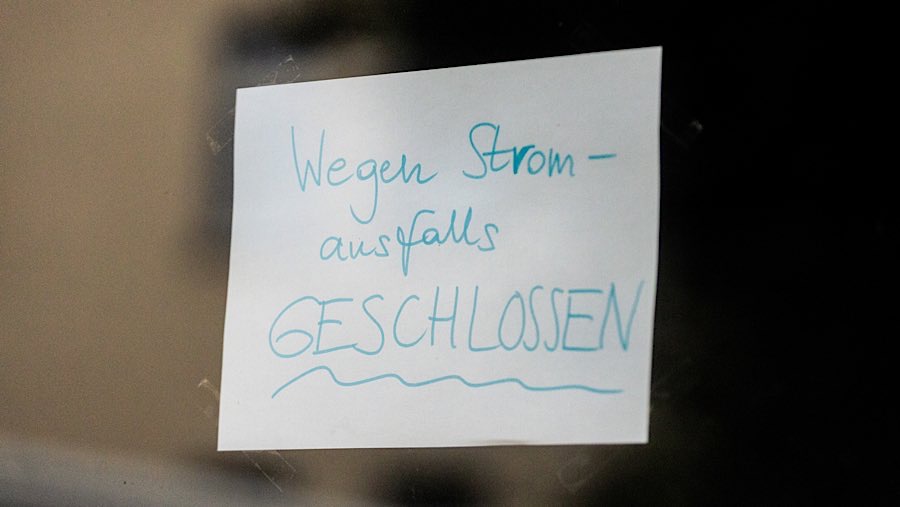 Wegen Strom-
ausfalls
GESCHLOSSEN